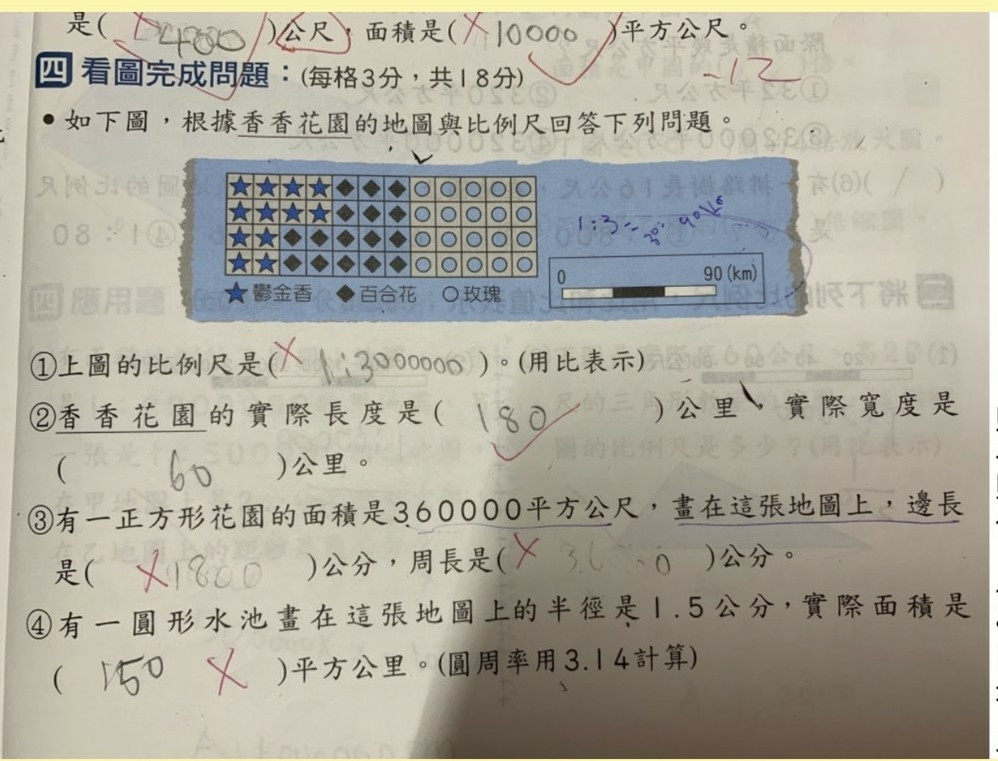 是( 400 )公尺，面積是( 10000 )平方公尺。
四 看圖完成問題：(每格3分，共18分) -12
• 如下圖，根據香香花園的地圖與比例尺回答下列問題。
0 90 (km)
★鬱金香 ◆百合花 ○玫瑰
①上圖的比例尺是( 1:3000000 )。(用比表示)
②香香花園的實際長度是( 180 )公里、實際寬度是
( 60 )公里。
③有一正方形花園的面積是360000平方公尺，畫在這張地圖上，邊長
是( 1800 )公分，周長是( )公分。
④有一圓形水池畫在這張地圖上的半徑是1.5公分，實際面積是
( 150 )平方公里。(圓周率用3.14計算)